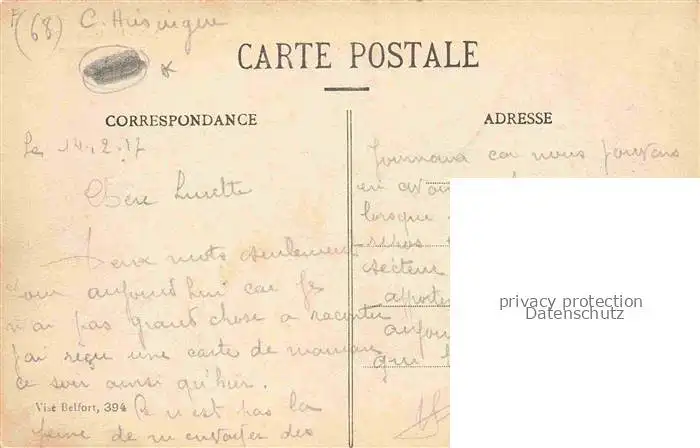 (68) C. Huningue
CARTE POSTALE
CORRESPONDANCE
ADRESSE
Le 14.2.17
Chère Lucette
Deux mots seulement
pour aujourd'hui car je
n'ai pas grand chose a raconter
j'ai reçu une carte de maman
ce soir ainsi qu'hier.
Visé Belfort, 394
Ce n'est pas la
peine de m'envoyer des
journaux car nous pouvons
en avoir
lorsque
secteur
apporte
qui
privacy protection
Datenschutz